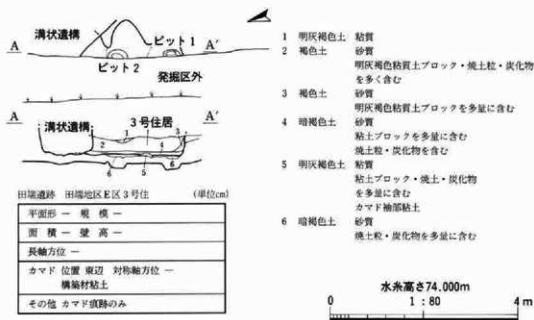 溝状遺構
ピット1
A
A′
ピット2
発掘区外
A
溝状遺構
3号住居
A′
1
2
3
4
6
5
6
田端遺跡 田端地区E区3号住 (単位cm)
平面形 ― 規模 ―
面積 ― 壁高 ―
長軸方位 ―
カマド 位置 東辺 対称軸方位 ―
構築材粘土
その他 カマド痕跡のみ
1 明灰褐色土 粘質
2 褐色土 砂質
明灰褐色粘質土ブロック・焼土粒・炭化物
を多く含む
3 褐色土 砂質
明灰褐色粘質土ブロックを多量に含む
4 暗褐色土 砂質
粘土ブロックを多量に含む
焼土粒・炭化物を含む
5 明灰褐色土 粘質
粘土ブロック・焼土・炭化物
を多量に含む
カマド袖部粘土
6 暗褐色土 砂質
焼土粒・炭化物を多量に含む
水糸高さ74.000m
0 1:80 4m